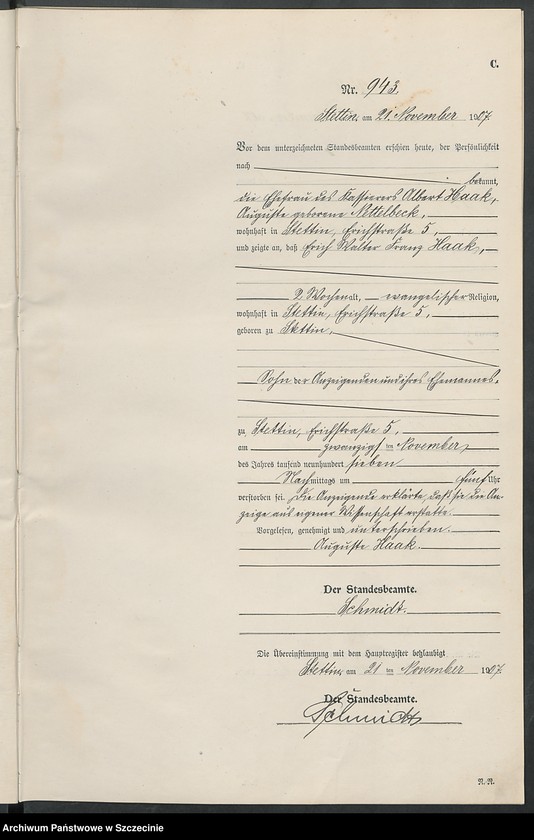 C.
Nr. 943.
Stettin, am 21. November 1907.
Vor dem unterzeichneten Standesbeamten erschien heute, der Persönlichkeit
nach bekannt,
die Ehefrau des Kassierers Albert Haak,
Auguste geborene Nettelbeck,
wohnhaft in Stettin, Erichstraße 5,
und zeigte an, daß Erich Walter Franz Haak,
2 Wochen alt, evangelischer Religion,
wohnhaft in Stettin, Erichstraße 5,
geboren zu Stettin,
Sohn der Anzeigenden und ihres Ehemannes,
zu Stettin, Erichstraße 5,
am zwanzigsten November
des Jahres tausend neunhundert sieben
Nachmittags um fünf Uhr
verstorben sei. Die Anzeigende erklärte, daß sie die An-
zeige aus eigener Wissenschaft erstatte.
Vorgelesen, genehmigt und unterschrieben.
Auguste Haak.
Der Standesbeamte.
Schmidt.
Die Übereinstimmung mit dem Hauptregister beglaubigt
Stettin, am 21ten November 1907.
Der Standesbeamte.
Schmidt
Archiwum Państwowe w Szczecinie